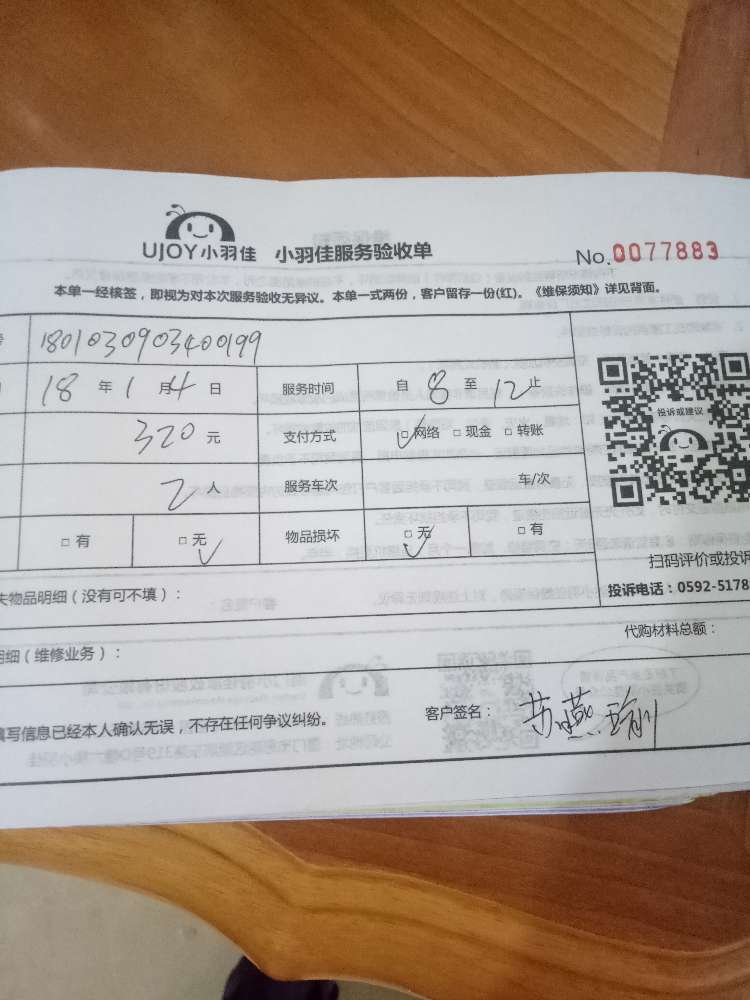 UJOY小羽佳 小羽佳服务验收单 No.0077883
本单一经核签，即视为对本次服务验收无异议。本单一式两份，客户留存一份(红)。《维保须知》详见背面。
1801030903400199
18 年 1 月 4 日 服务时间 自 8 至 12 止
320 元 支付方式 □网络 □现金 □转账
投诉或建议
2 人 服务车次 车/次
□有 □无 物品损坏 □无 □有
扫码评价或投诉
失物品明细（没有可不填）： 投诉电话：0592-5178
代购材料总额：
明细（维修业务）：
填写信息已经本人确认无误，不存在任何争议纠纷。 客户签名：